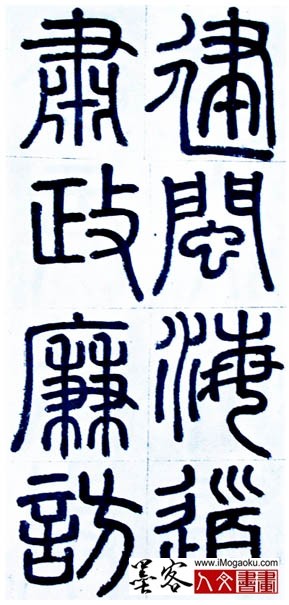 建閩海道
肅政廉訪
墨客
www.iMogaoku.com
人文書畫